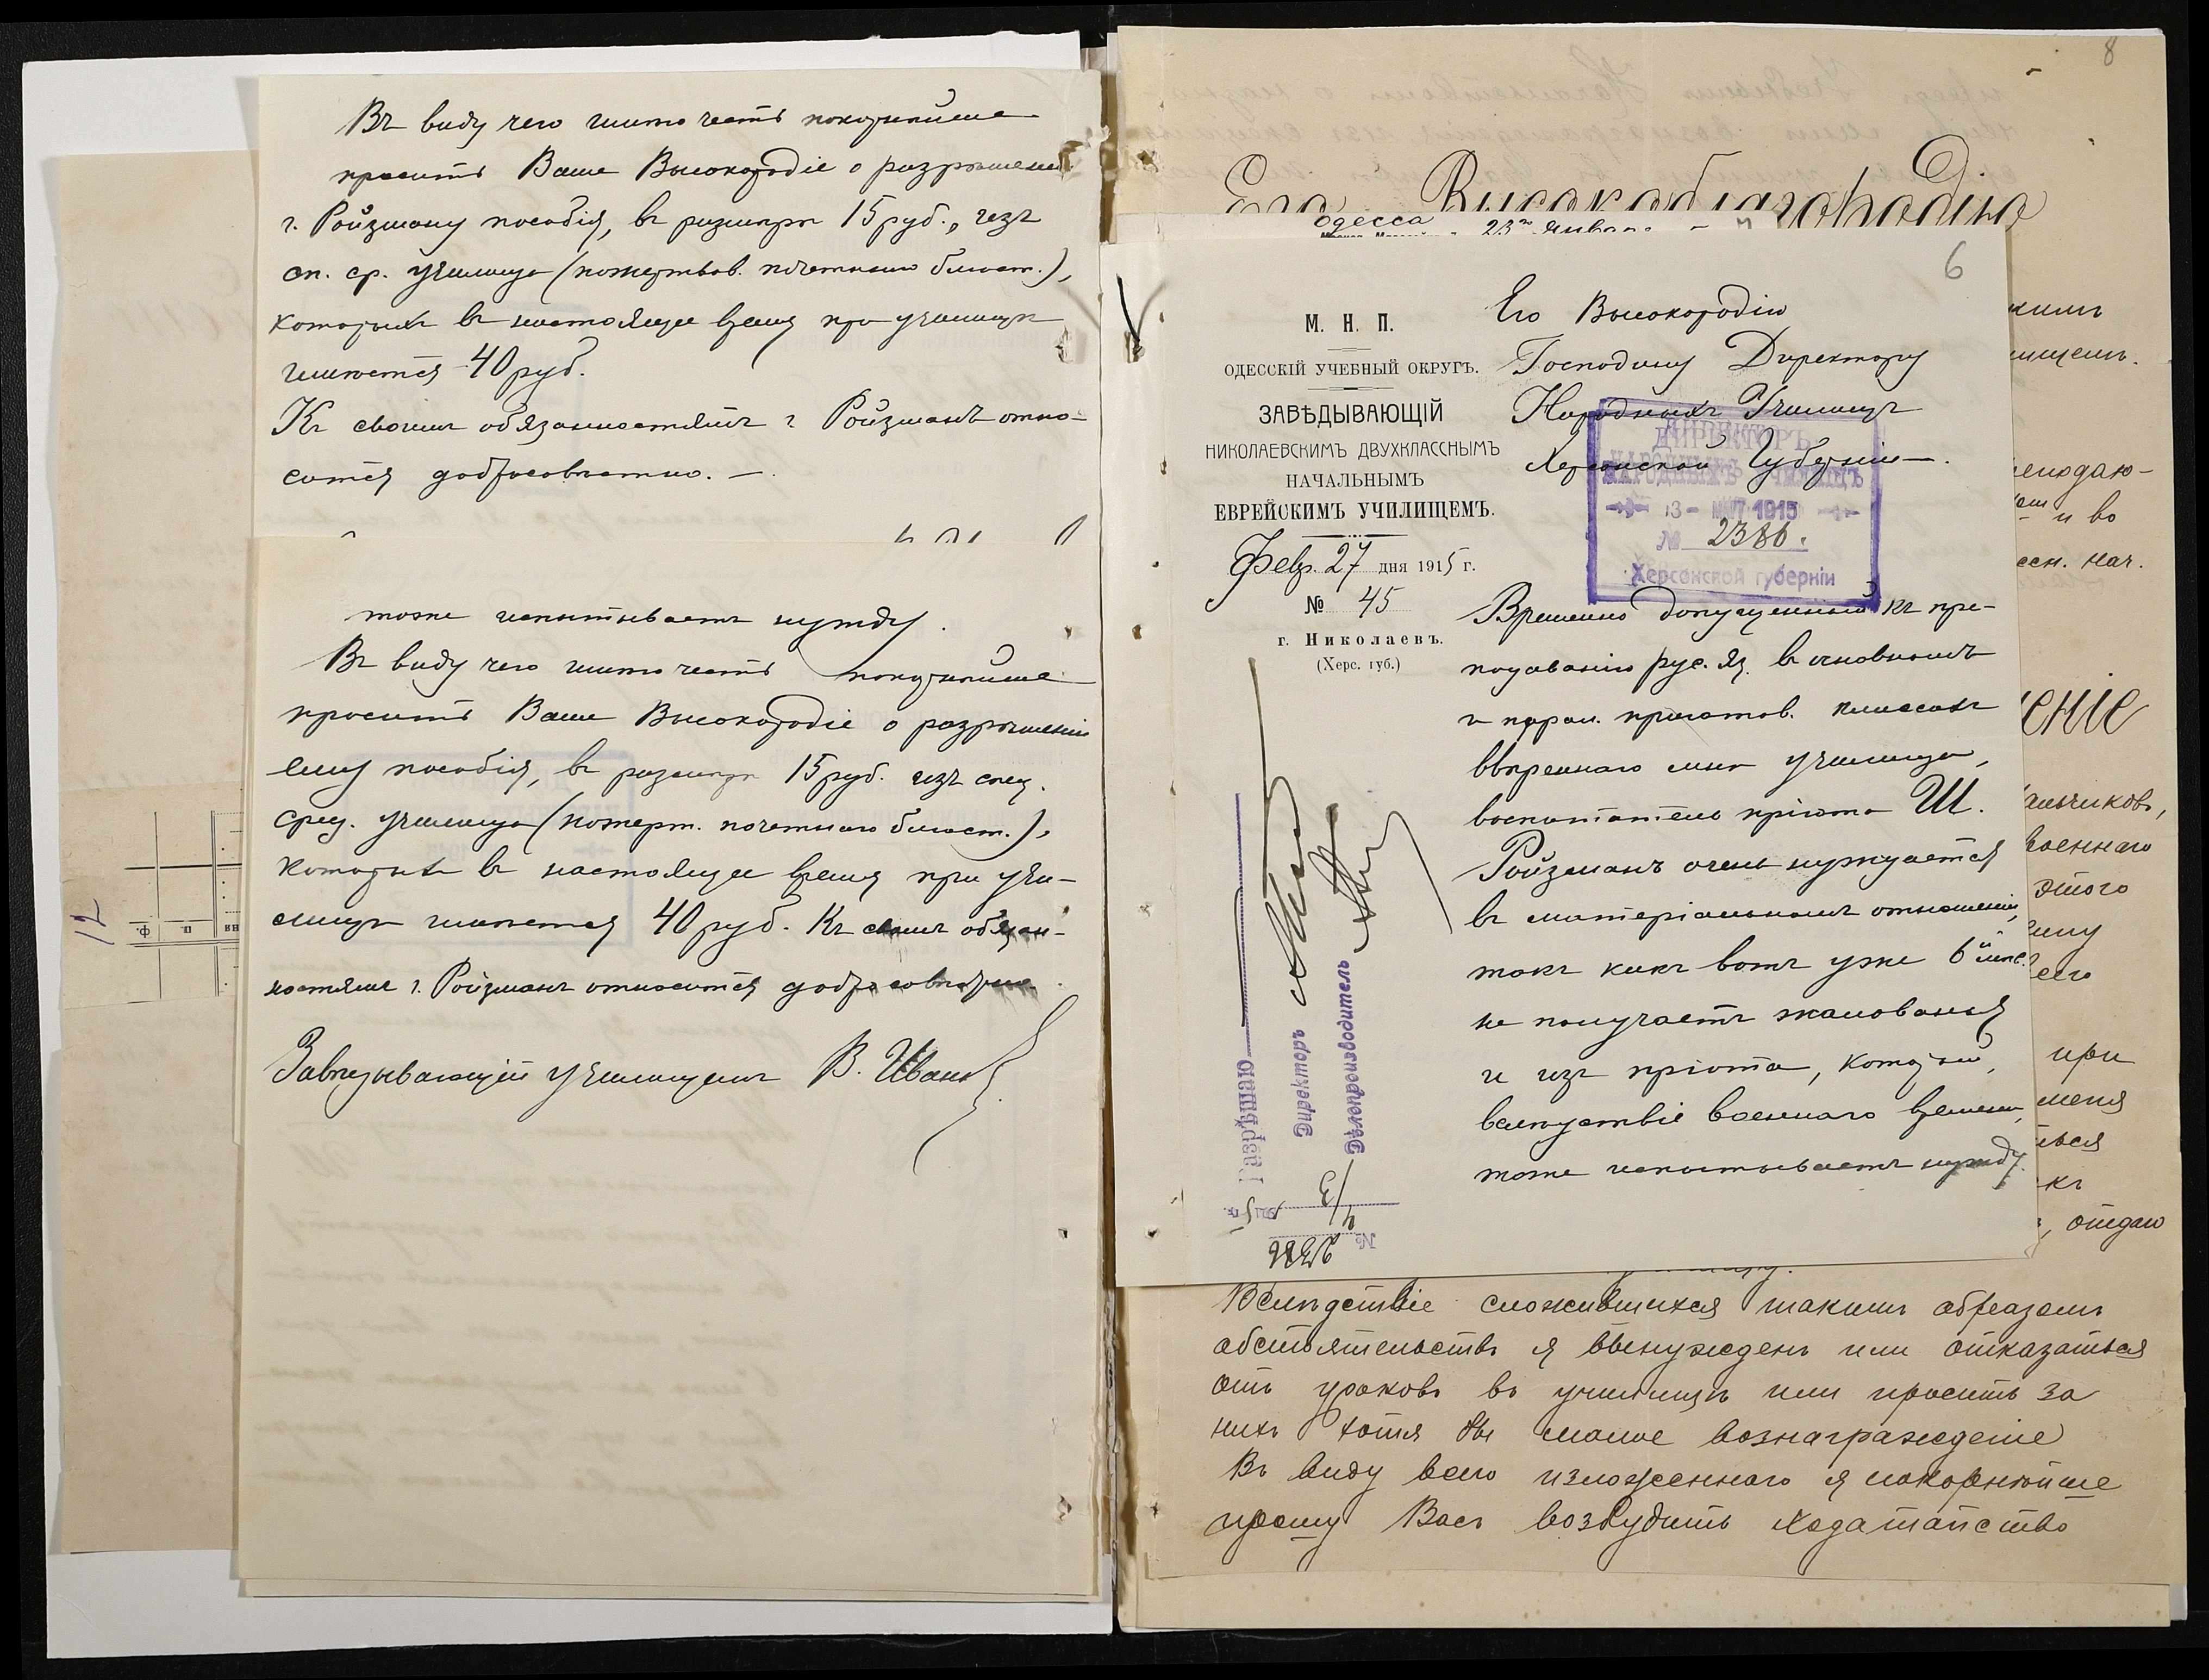 Въ виду чего имѣю честь покорнѣйше
просить Ваше Высокородіе о разрѣшеніи
г. Ройзману пособія, въ размѣрѣ 15 руб., изъ
сп. ср. училища (пожертвов. почетнаго блюст.),
которыхъ въ настоящее время при училищѣ
имѣется 40 руб.
Къ своимъ обязанностямъ г. Ройзманъ отно-
сится добросовѣстно. —
тоже испытываетъ нужду.
Въ виду чего имѣю честь покорнѣйше
просить Ваше Высокородіе о разрѣшеніи
ему пособія, въ размѣрѣ 15 руб. изъ спец.
сред. училища (пожертв. почетнаго блюст.),
которыхъ въ настоящее время при учи-
лищѣ имѣется 40 руб. Къ своимъ обязан-
ностямъ г. Ройзманъ относится добросовѣстно.
Завѣдывающій училищемъ В. Иванов
12
ф.
п
8
Его Высокоблагородію
Одесса 23го Января
6
М. Н. П.
ОДЕССКІЙ УЧЕБНЫЙ ОКРУГЪ.
ЗАВѢДЫВАЮЩІЙ
НИКОЛАЕВСКИМЪ ДВУХКЛАССНЫМЪ
НАЧАЛЬНЫМЪ
ЕВРЕЙСКИМЪ УЧИЛИЩЕМЪ.
Февр. 27 дня 1915 г.
№ 45
г. Николаевъ.
(Херс. губ.)
Его Высокородію
Господину Директору
Народныхъ Училищъ
Херсонской Губерніи.
ДИРЕКТОРЪ
НАРОДНЫХЪ УЧИЛИЩЪ
3 - МАР 1915
№ 2386.
Херсонской губерніи
Временно допущенный къ пре-
подаванію рус. яз. въ основномъ
и парал. приготов. классахъ
ввѣреннаго мнѣ училища,
воспитатель пріюта Ш.
Ройзманъ очень нуждается
въ матеріальномъ отношеніи,
такъ какъ вотъ уже 6й мѣс.
не получаетъ жалованья
и изъ пріюта, который,
вслѣдствіе военнаго времени,
тоже испытываетъ нужду.
Разрѣшаю
Директоръ
Дѣлопроизводитель
4/3
№ 2386
кимъ
ищемъ.
еподаю-
и во
нач.
еніе
альчиковъ,
военнаго
этого
при
меня
ться
къ
, отдаю
Вслѣдствіе сложившихся такимъ образомъ
обстоятельствъ я вынужденъ или отказаться
отъ уроковъ въ училищѣ или просить за
нихъ хотя бы малое вознагражденіе
Въ виду всего изложеннаго я покорнѣйше
прошу Васъ возбудить ходатайство